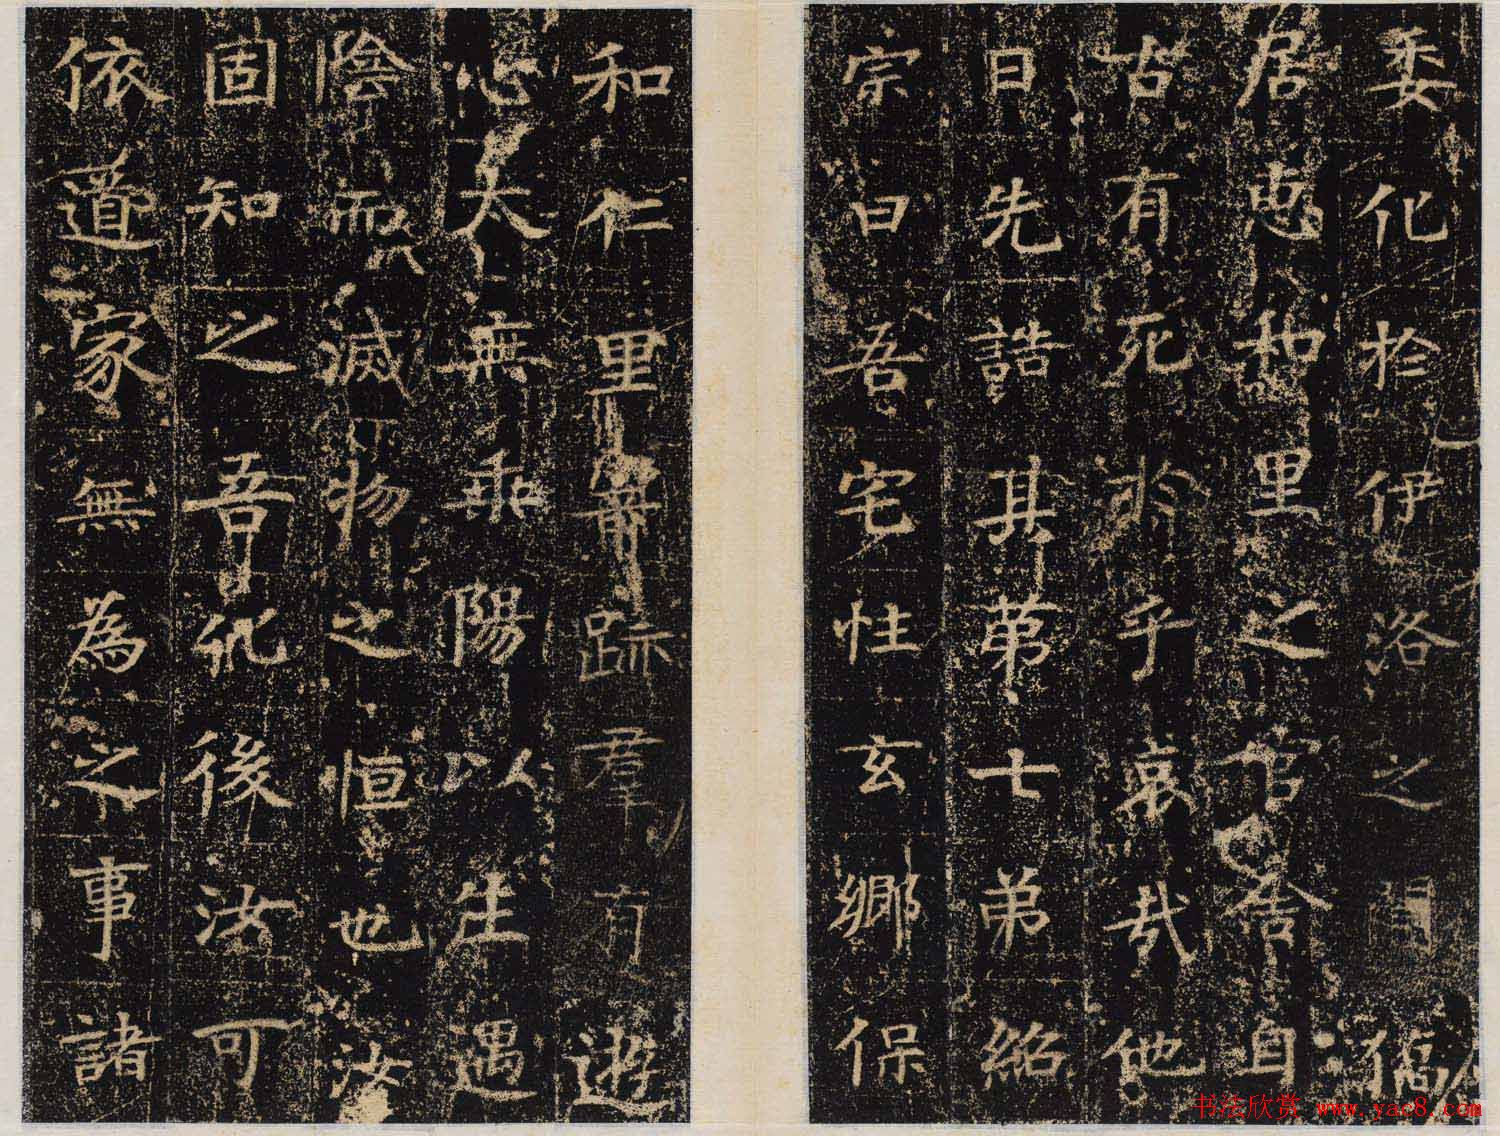 委化於伊洛之間獦
居惠和里之官舍自
古有死於乎哀哉他
日先誥其第七弟紹
宗曰吾宅性玄鄉保
和仁里寄跡群有遊
心太無乘陽以生遇
陰而滅物之恒也汝
固知之吾化後汝可
依道家無為之事諸
书法欣赏 www.yac8.com